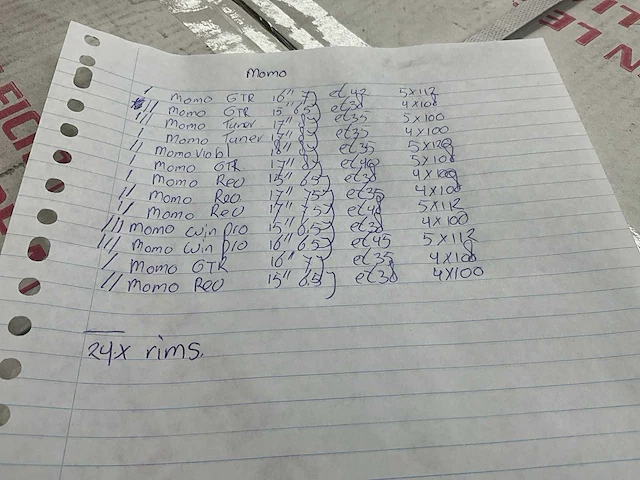 Momo
/ Momo GTR 16" 7J et42 5x112
/// Momo GTR 15" 6,5J et38 4x108
/// Momo Tuner 17" 8J et35 5x100
/ Momo Tuner 17" 8J et35 4x100
// Momo 18" 8J et35
/ Momo GTR 17" 8J 5x108
/ Momo Rev 15" 6,5J et38
// Momo Rev 17" 7,5J et35 4x108
// Momo Rev 17" 7,5J et48 5x112
/// Momo Win pro 15" 6,5J et38 4x100
/// Momo Win pro 16" 6,5J et45 5x112
/ Momo GTR 16" 7J et35 4x108
// Momo Rev 15" 6,5J et38 4x100
24x rims.